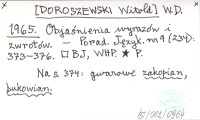 [DOROSZEWSKI Witold] W.D.
1965. Objaśnienia wyrazów i
zwrotów. — Porad. Język. nr 9 (234):
373–376. □ BJ, WHP. ★ P.
Na s 374: gwarowe zakopian,
bukowian.